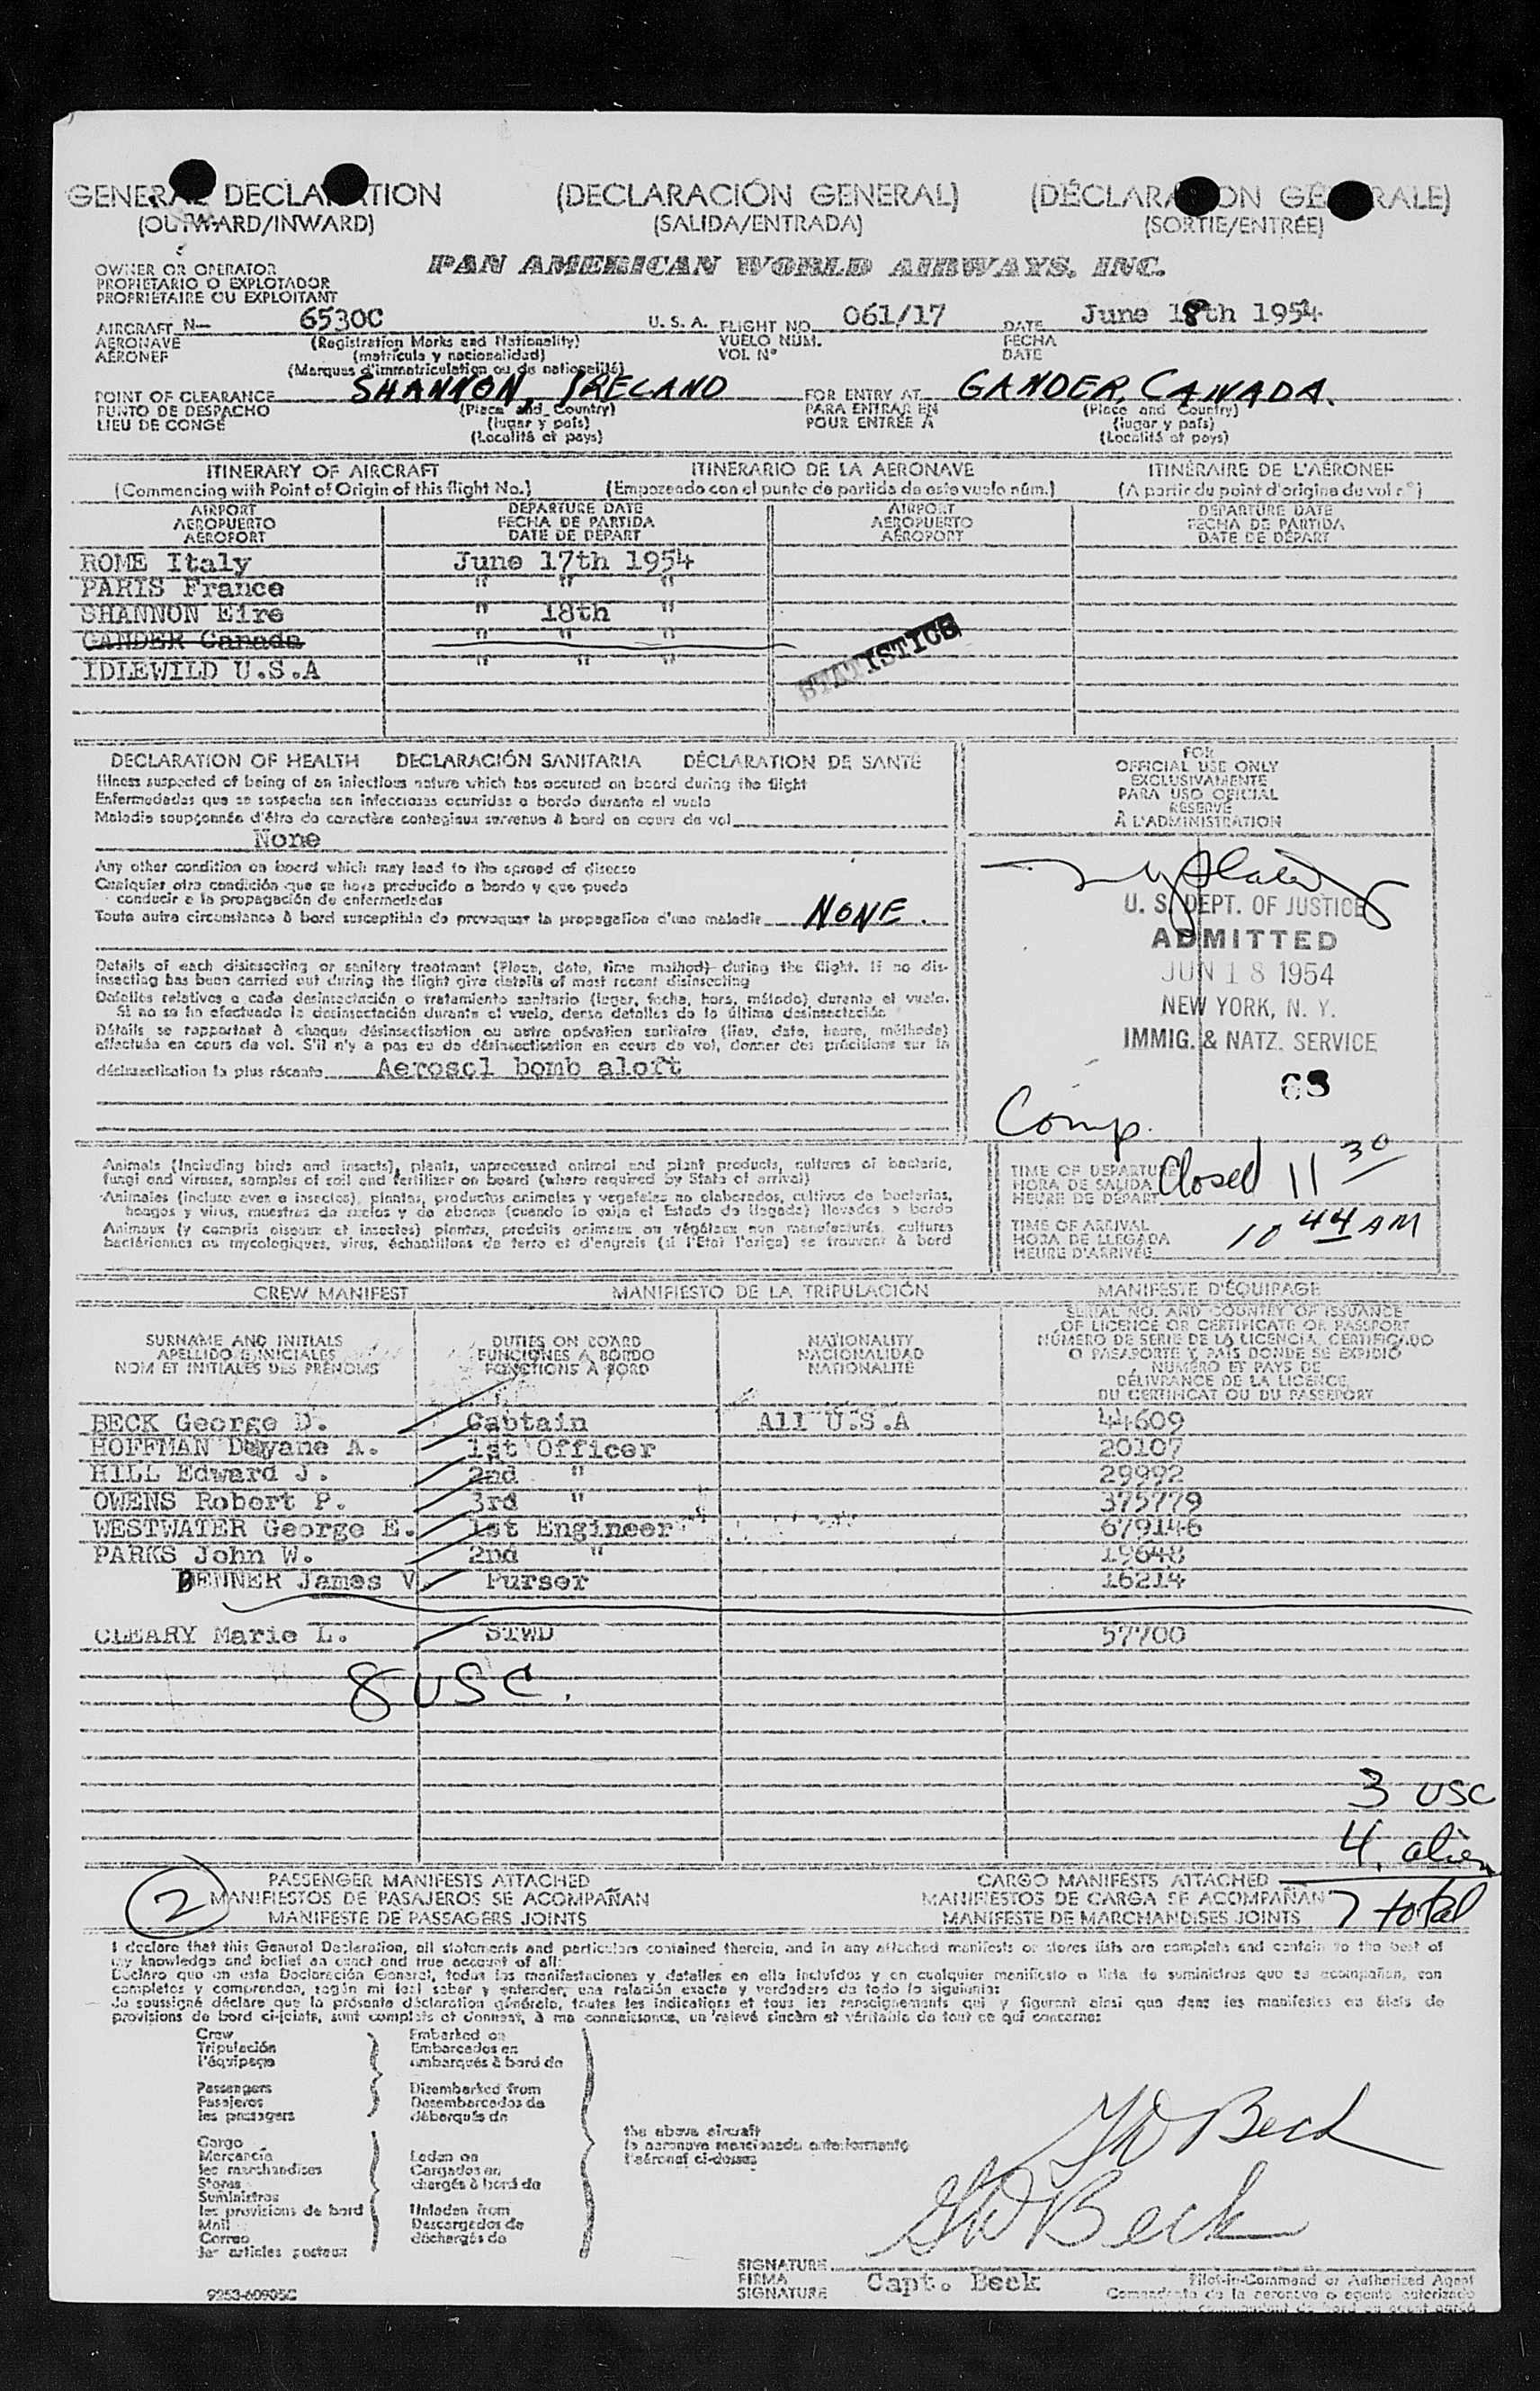 GENERAL DECLARATION (DECLARACIÓN GENERAL) (DÉCLARATION GÉNÉRALE)
(OUTWARD/INWARD) (SALIDA/ENTRADA) (SORTIE/ENTRÉE)
OWNER OR OPERATOR
PROPIETARIO O EXPLOTADOR
PROPRIÉTAIRE OU EXPLOITANT
PAN AMERICAN WORLD AIRWAYS, INC.
AIRCRAFT N— 6530C U. S. A. FLIGHT NO. 061/17 DATE June 18th 1954
AERONAVE (Registration Marks and Nationality) VUELO NÚM. FECHA
AÉRONEF (matrícula y nacionalidad) VOL Nº DATE
(Marques d'immatriculation ou de nationalité)
POINT OF CLEARANCE SHANNON, IRELAND FOR ENTRY AT GANDER, CANADA.
PUNTO DE DESPACHO (Place and Country) PARA ENTRAR EN (Place and Country)
LIEU DE CONGÉ (lugar y país) POUR ENTRÉE À (lugar y país)
(Localité et pays) (Localité et pays)
ITINERARY OF AIRCRAFT ITINERARIO DE LA AERONAVE ITINÉRAIRE DE L'AÉRONEF
(Commencing with Point of Origin of this flight No.) (Empezando con el punto de partida de este vuelo núm.) (A partir du point d'origine du vol nº)
AIRPORT DEPARTURE DATE AIRPORT DEPARTURE DATE
AEROPUERTO FECHA DE PARTIDA AEROPUERTO FECHA DE PARTIDA
AÉROPORT DATE DE DÉPART AÉROPORT DATE DE DÉPART
ROME Italy June 17th 1954
PARIS France " " "
SHANNON Eire " 18th "
GANDER Canada " " "
IDLEWILD U.S.A " " "
STATISTICS
DECLARATION OF HEALTH DECLARACIÓN SANITARIA DÉCLARATION DE SANTÉ
Illness suspected of being of an infectious nature which has occured on board during the flight
Enfermedades que se sospecha son infecciosas ocurridas a bordo durante el vuelo
Maladie soupçonnée d'être de caractère contagieux survenue à bord en cours de vol
None
Any other condition on board which may lead to the spread of disease
Cualquier otra condición que se haya producido a bordo y que pueda
conducir a la propagación de enfermedades
Toute autre circonstance à bord susceptible de provoquer la propagation d'une maladie NONE.
Details of each disinsecting or sanitary treatment (Place, date, time method) during the flight. If no dis-
insecting has been carried out during the flight give details of most recent disinsecting
Detalles relativos a cada desinsectación o tratamiento sanitario (lugar, fecha, hora, método) durante el vuelo.
Si no se ha efectuado la desinsectación durante el vuelo, dense detalles de la última desinsectación
Détails se rapportant à chaque désinsectisation ou autre opération sanitaire (lieu, date, heure, méthode)
effectuée en cours de vol. S'il n'y a pas eu de désinsectisation en cours de vol, donner des précisions sur la
désinsectisation la plus récente Aerosol bomb aloft
FOR
OFFICIAL USE ONLY
EXCLUSIVAMENTE
PARA USO OFICIAL
RÉSERVÉ
À L'ADMINISTRATION
U. S. DEPT. OF JUSTICE
ADMITTED
JUN 18 1954
NEW YORK, N. Y.
IMMIG. & NATZ. SERVICE
68
Comp.
Animals (including birds and insects), plants, unprocessed animal and plant products, cultures of bacteria,
fungi and viruses, samples of soil and fertilizer on board (where required by State of arrival)
Animales (incluso aves e insectos), plantas, productos animales y vegetales no elaborados, cultivos de bacterias,
hongos y virus, muestras de suelos y de abonos (cuando lo exija el Estado de llegada) llevados a bordo
Animaux (y compris oiseaux et insectes) plantes, produits animaux ou végétaux non manufacturés, cultures
bactériennes ou mycologiques, virus, échantillons de terre et d'engrais (si l'Etat l'exige) se trouvent à bord
TIME OF DEPARTURE
HORA DE SALIDA Closed 11 30
HEURE DE DÉPART
TIME OF ARRIVAL
HORA DE LLEGADA 10 44 AM
HEURE D'ARRIVÉE
CREW MANIFEST MANIFIESTO DE LA TRIPULACIÓN MANIFESTE D'ÉQUIPAGE
SURNAME AND INITIALS
APELLIDO E INICIALES
NOM ET INITIALES DES PRÉNOMS
DUTIES ON BOARD
FUNCIONES A BORDO
FONCTIONS À BORD
NATIONALITY
NACIONALIDAD
NATIONALITÉ
SERIAL NO. AND COUNTRY OF ISSUANCE
OF LICENCE OR CERTIFICATE OR PASSPORT
NÚMERO DE SERIE DE LA LICENCIA, CERTIFICADO
O PASAPORTE Y PAÍS DONDE SE EXPIDIÓ
NUMÉRO ET PAYS DE
DÉLIVRANCE DE LA LICENCE,
DU CERTIFICAT OU DU PASSEPORT
BECK George D. Captain All U.S.A 44609
HOFFMAN Dwyane A. 1st Officer 20107
HILL Edward J. 2nd " 29992
OWENS Robert P. 3rd " 375779
WESTWATER George E. 1st Engineer 679146
PARKS John W. 2nd " 19648
BENNER James V. Purser 16214
CLEARY Marie L. STWD 57700
8 USC.
3 USC
4. alien
7 total
2
PASSENGER MANIFESTS ATTACHED CARGO MANIFESTS ATTACHED
MANIFIESTOS DE PASAJEROS SE ACOMPAÑAN MANIFIESTOS DE CARGA SE ACOMPAÑAN
MANIFESTE DE PASSAGERS JOINTS MANIFESTE DE MARCHANDISES JOINTS
I declare that this General Declaration, all statements and particulars contained therein, and in any attached manifests or stores lists are complete and contain to the best of
my knowledge and belief an exact and true account of all:
Declaro que en esta Declaración General, todas las manifestaciones y detalles en ella incluídos y en cualquier manifiesto o lista de suministros que se acompañan, son
completos y comprenden, según mi leal saber y entender, una relación exacta y verdadera de todo lo siguiente:
Je soussigné déclare que la présente déclaration générale, toutes les indications et tous les renseignements qui y figurent ainsi que dans les manifestes ou états de
provisions de bord ci-joints, sont complets et donnent, à ma connaissance, un relevé sincère et véritable de tout ce qui concerne:
Crew
Tripulación
l'équipage
Passengers
Pasajeros
les passagers
Cargo
Mercancía
les marchandises
Stores
Suministros
les provisions de bord
Mail
Correo
les articles postaux
Embarked on
Embarcados en
embarqués à bord de
Disembarked from
Desembarcados de
débarqués de
Laden on
Cargados en
chargés à bord de
Unladen from
Descargados de
déchargés de
the above aircraft
la aeronave mencionada anteriormente
l'aéronef ci-dessus
GD Beck
GD Beck
SIGNATURE
FIRMA Capt. Beck
SIGNATURE
Pilot-in-Command or Authorized Agent
Comandante de la aeronave o agente autorizado
9253-60905C